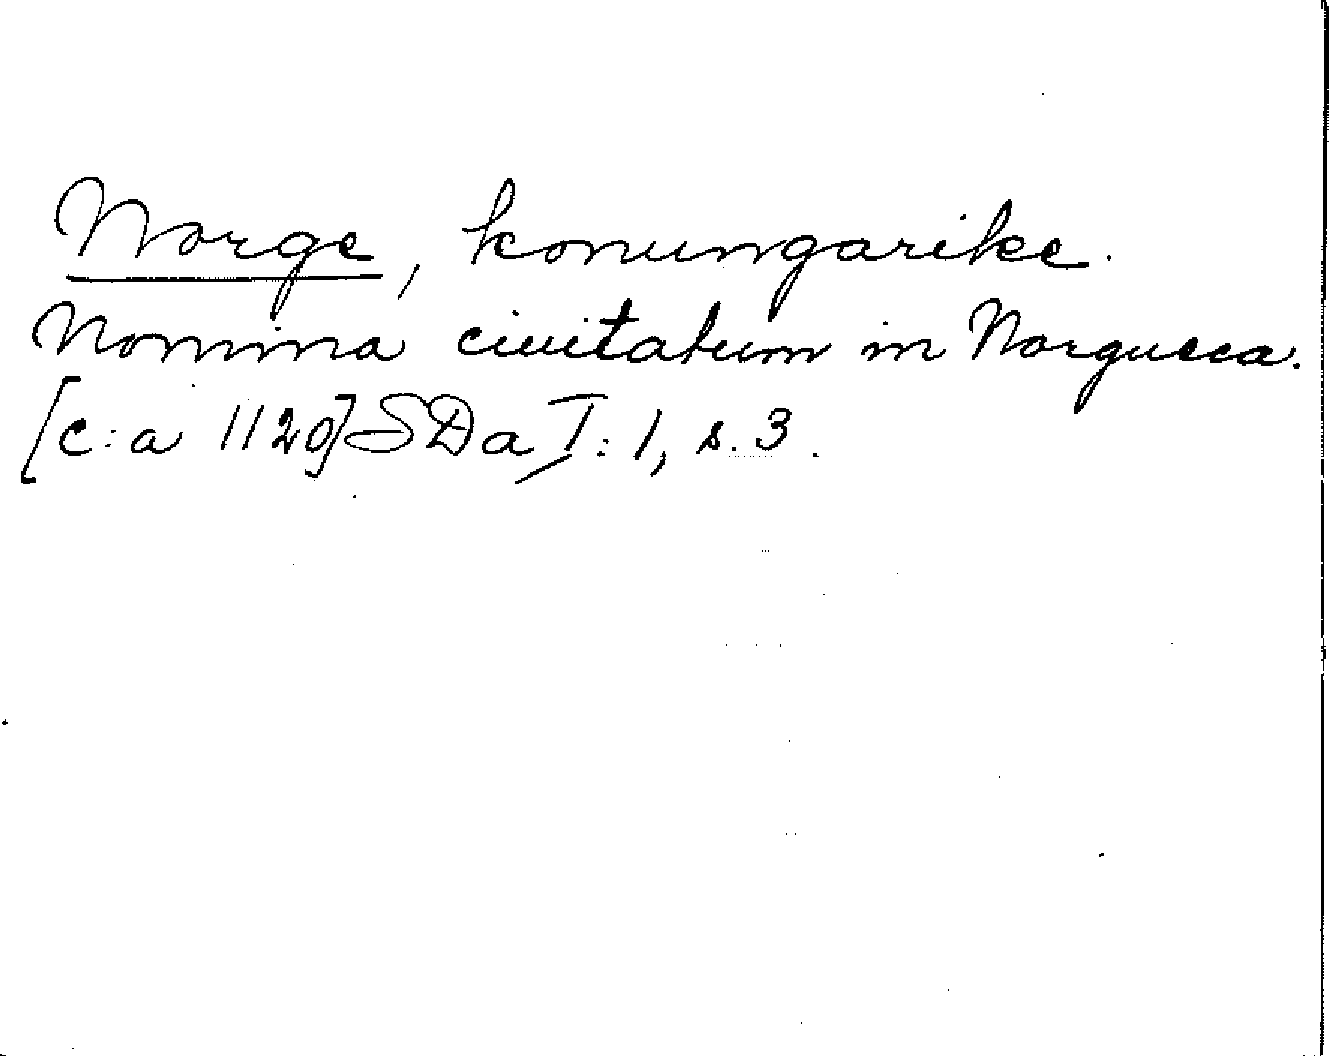 Norge, konungarike.
Nomina ciuitatum in Norgueca.
[c:a 1120] SDa I: 1, s. 3.